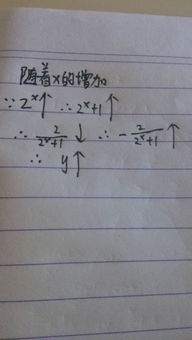 随着x的增加
∵ 2^x↑ ∴ 2^x+1↑
∴ 2/(2^x+1) ↓ ∴ -2/(2^x+1) ↑
∴ y↑